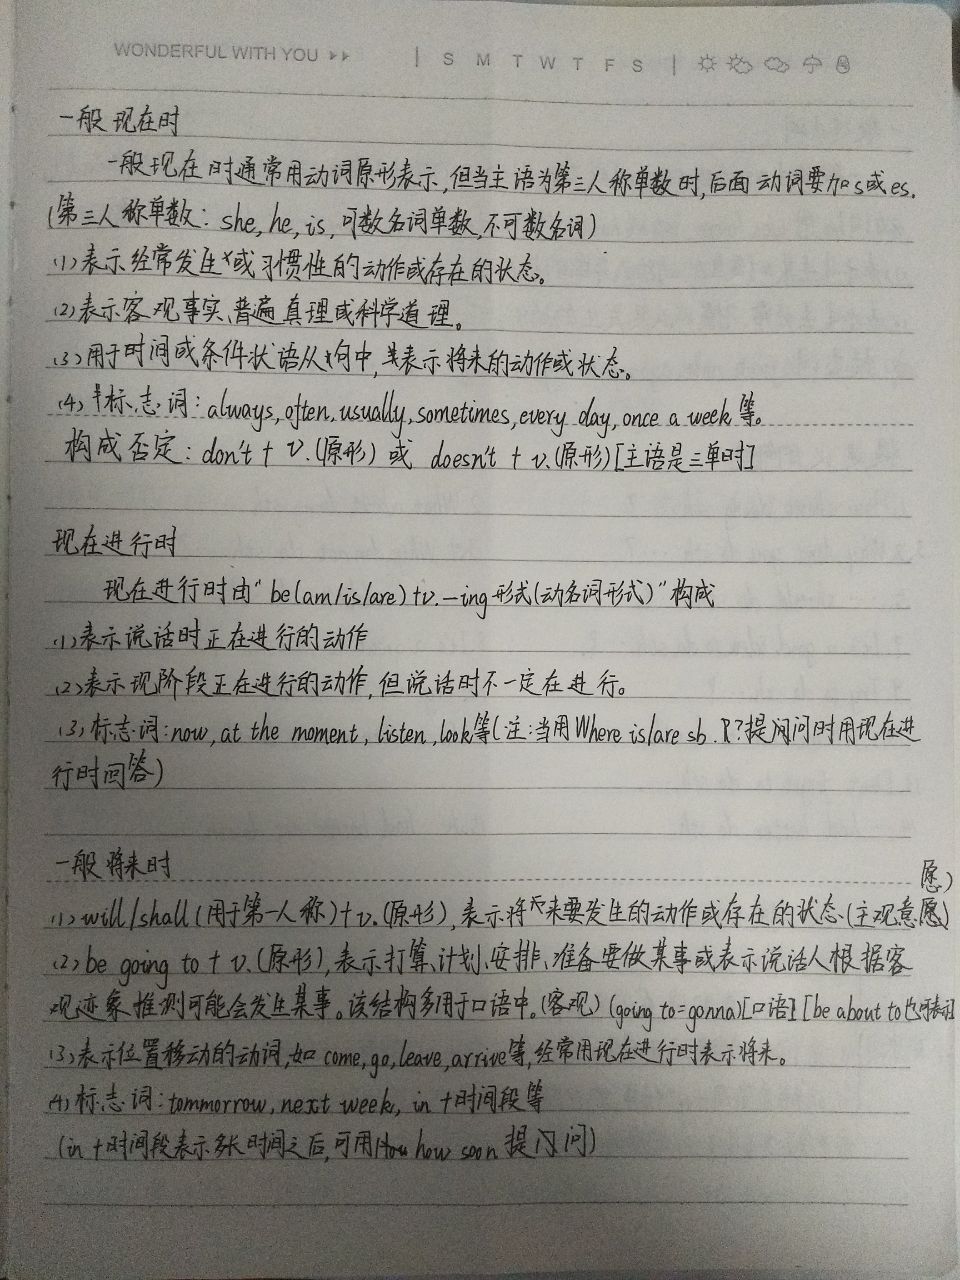 WONDERFUL WITH YOU
S M T W T F S
一般现在时
一般现在时通常用动词原形表示,但当主语为第三人称单数时,后面动词要加s或es.
(第三人称单数: she, he, is, 可数名词单数,不可数名词)
(1)表示经常发生或习惯性的动作或存在的状态。
(2)表示客观事实、普遍真理或科学道理。
(3)用于时间或条件状语从句中,表示将来的动作或状态。
(4)标志词: always, often, usually, sometimes, every day, once a week等。
构成否定: don't + v.(原形) 或 doesn't + v.(原形)[主语是三单时]
现在进行时
现在进行时由"be(am/is/are)+v.-ing形式(动名词形式)"构成
(1)表示说话时正在进行的动作
(2)表示现阶段正在进行的动作,但说话时不一定在进行。
(3)标志词: now, at the moment, listen, look等(注:当用Where is/are sb.?提问时用现在进
行时回答)
一般将来时
愿)
(1)will/shall(用于第一人称)+v.(原形),表示将来要发生的动作或存在的状态(主观意愿)
(2)be going to + v.(原形),表示打算、计划、安排、准备要做某事或表示说话人根据客
观迹象推测可能会发生某事。该结构多用于口语中。(客观)(going to=gonna)[口语][be about to也可表示]
(3)表示位置移动的动词,如come, go, leave, arrive等,经常用现在进行时表示将来。
(4)标志词: tommorrow, next week, in+时间段等
(in+时间段表示多长时间之后,可用how soon提问)